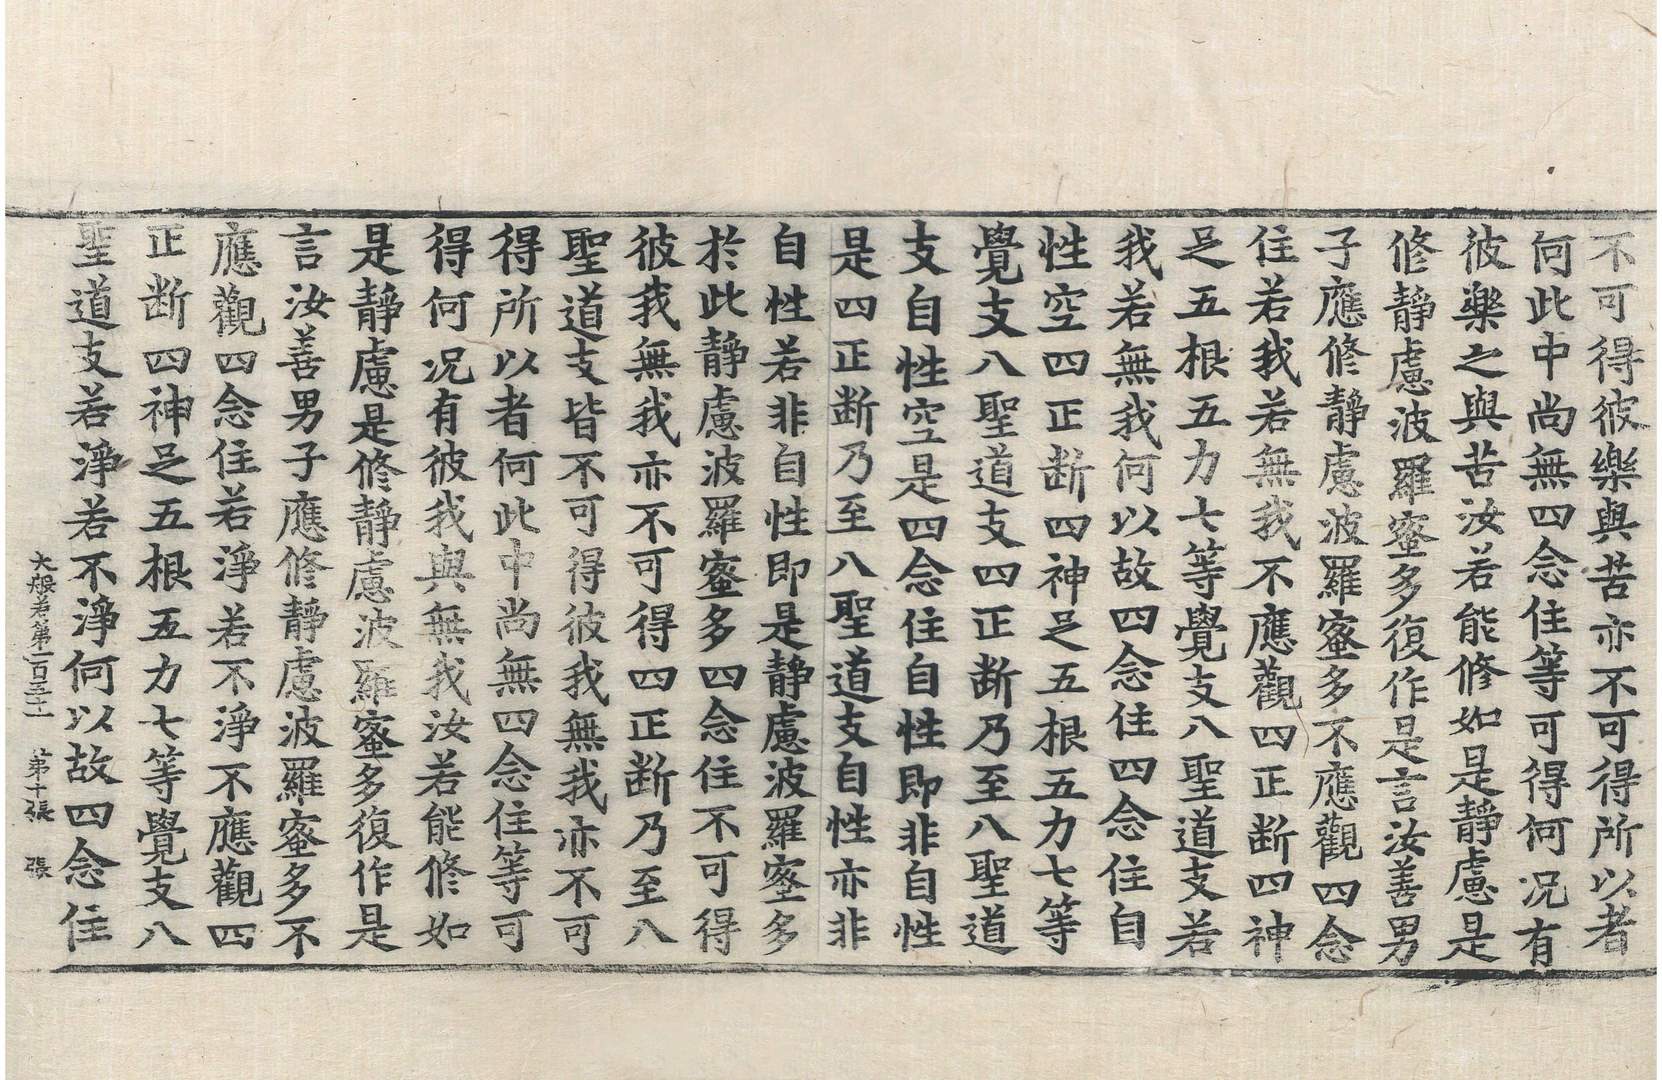 不可得彼樂與苦亦不可得所以者
何此中尚無四念住等可得何況有
彼樂之與苦汝若能修如是靜慮是
修靜慮波羅蜜多復作是言汝善男
子應修靜慮波羅蜜多不應觀四念
住若我若無我不應觀四正斷四神
足五根五力七等覺支八聖道支若
我若無我何以故四念住四念住自
性空四正斷四神足五根五力七等
覺支八聖道支四正斷乃至八聖道
支自性空是四念住自性即非自性
是四正斷乃至八聖道支自性亦非
自性若非自性即是靜慮波羅蜜多
於此靜慮波羅蜜多四念住不可得
彼我無我亦不可得四正斷乃至八
聖道支皆不可得彼我無我亦不可
得所以者何此中尚無四念住等可
得何況有彼我與無我汝若能修如
是靜慮是修靜慮波羅蜜多復作是
言汝善男子應修靜慮波羅蜜多不
應觀四念住若淨若不淨不應觀四
正斷四神足五根五力七等覺支八
聖道支若淨若不淨何以故四念住
大般若第一百五十一 第十張 張